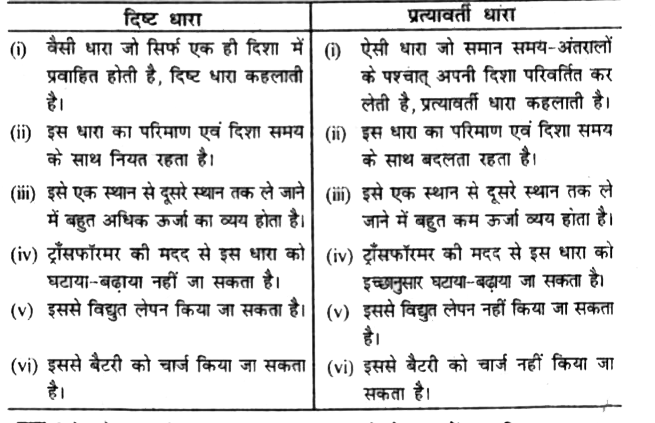 दिष्ट धारा
(i) वैसी धारा जो सिर्फ एक ही दिशा में
प्रवाहित होती है, दिष्ट धारा कहलाती
है।
(ii) इस धारा का परिमाण एवं दिशा समय
के साथ नियत रहता है।
(iii) इसे एक स्थान से दूसरे स्थान तक ले जाने
में बहुत अधिक ऊर्जा का व्यय होता है।
(iv) ट्राँसफॉरमर की मदद से इस धारा को
घटाया-बढ़ाया नहीं जा सकता है।
(v) इससे विद्युत लेपन किया जा सकता है।
(vi) इससे बैटरी को चार्ज किया जा सकता
है।
प्रत्यावर्ती धारा
(i) ऐसी धारा जो समान समय-अंतरालों
के पश्चात् अपनी दिशा परिवर्तित कर
लेती है, प्रत्यावर्ती धारा कहलाती है।
(ii) इस धारा का परिमाण एवं दिशा समय
के साथ बदलता रहता है।
(iii) इसे एक स्थान से दूसरे स्थान तक ले
जाने में बहुत कम ऊर्जा व्यय होता है।
(iv) ट्राँसफॉरमर की मदद से इस धारा को
इच्छानुसार घटाया-बढ़ाया जा सकता है।
(v) इससे विद्युत लेपन नहीं किया जा सकता
है।
(vi) इससे बैटरी को चार्ज नहीं किया जा
सकता है।